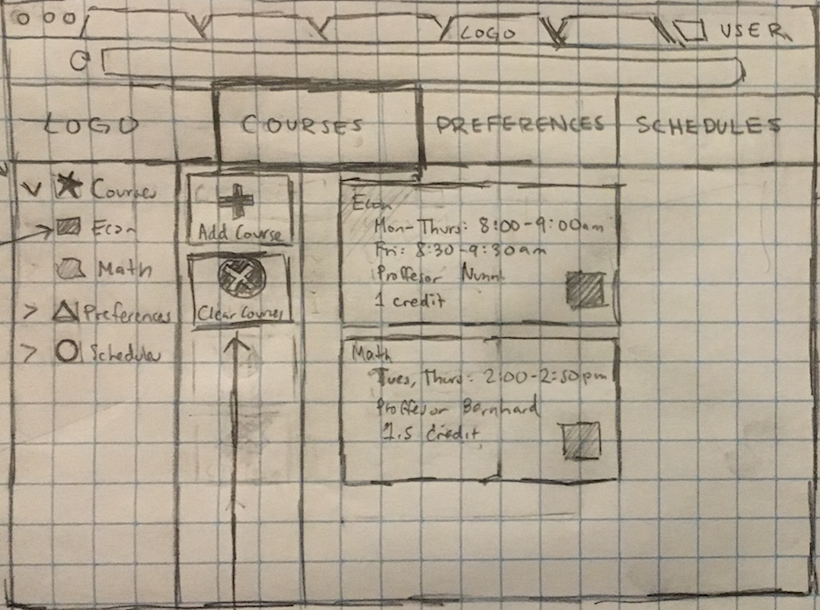 LOGO
USER
LOGO
COURSES
PREFERENCES
SCHEDULES
Courses
Econ
Math
Preferences
Schedules
Add Course
Clear Courses
Econ
Mon-Thurs: 8:00-9:00am
Fri: 8:30-9:30am
Proffesor Nunn
1 credit
Math
Tues, Thurs: 2:00-2:50pm
Proffesor Bernhard
1.5 credit